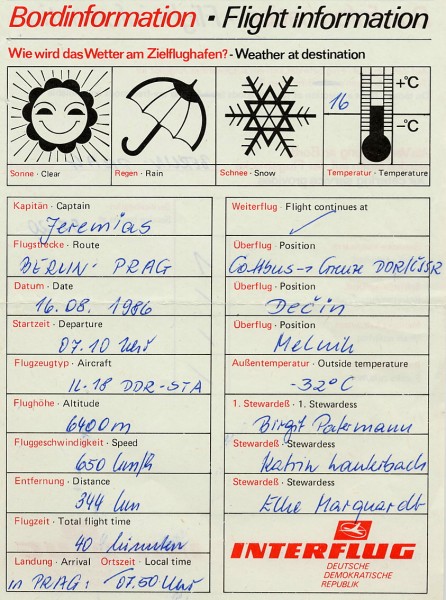 Bordinformation · Flight information
Wie wird das Wetter am Zielflughafen? - Weather at destination
16
+°C
-°C
Sonne · Clear
Regen · Rain
Schnee · Snow
Temperatur · Temperature
Kapitän · Captain
Jeremias
Flugstrecke · Route
BERLIN - PRAG
Datum · Date
16.08. 1986
Startzeit · Departure
07.10 Uhr
Flugzeugtyp · Aircraft
IL-18 DDR-STA
Flughöhe · Altitude
6400 m
Fluggeschwindigkeit · Speed
650 km/h
Entfernung · Distance
344 km
Flugzeit · Total flight time
40 Minuten
Landung · Arrival Ortszeit · Local time
in PRAG: 07.50 Uhr
Weiterflug · Flight continues at
Überflug · Position
Cottbus → Grenze DDR/ČSSR
Überflug · Position
Dečin
Überflug · Position
Melnik
Außentemperatur · Outside temperature
-32°C
1. Stewardeß · 1. Stewardess
Birgit
Stewardeß · Stewardess
Katrin
Stewardeß · Stewardess
Elke Marquardt
INTERFLUG
DEUTSCHE
DEMOKRATISCHE
REPUBLIK